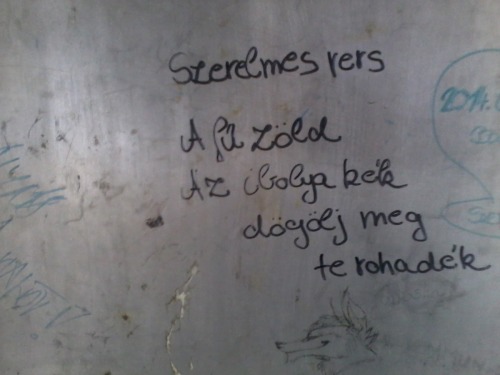 Szerelmes vers
A fű zöld
Az ibolya kék
dögölj meg
te rohadék
2014.